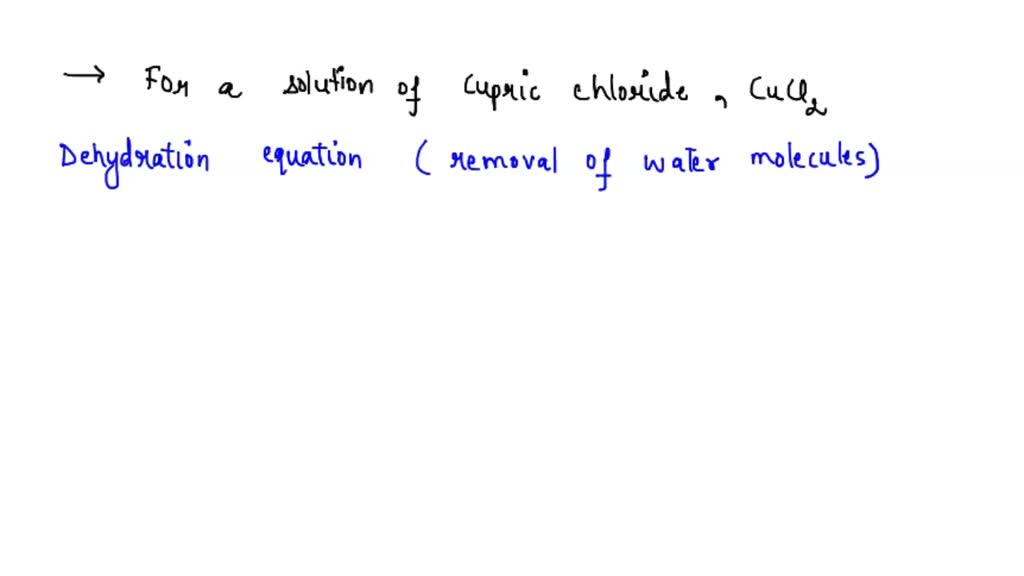 → For a solution of Cupric chloride, CuCl₂
Dehydration equation (removal of water molecules)